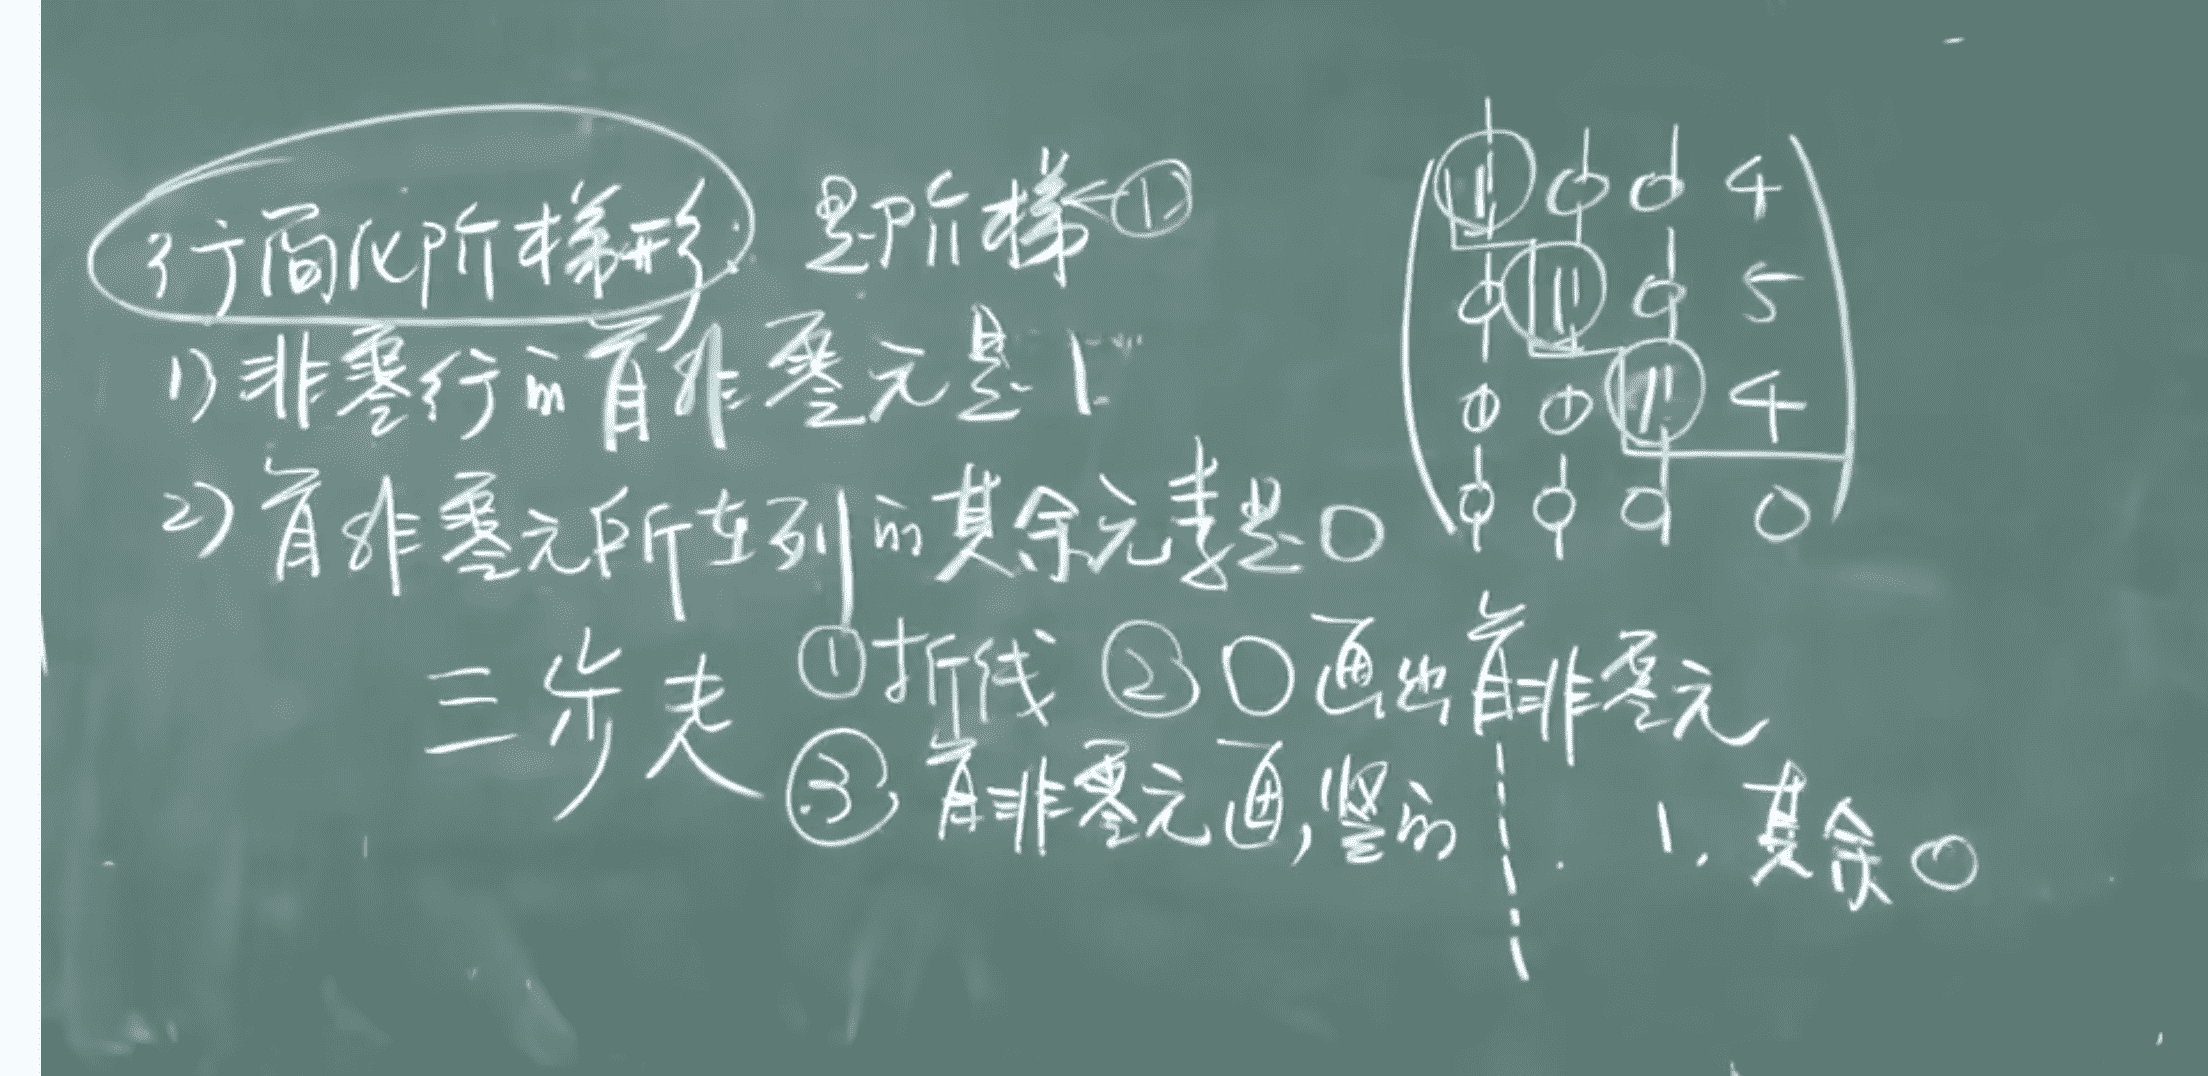 行简化阶梯形. 是阶梯 ①
1) 非零行的首非零元是1.
2) 首非零元所在列的其余元素是0
三步走 ①折线 ②○画出首非零元
③首非零元画,竖的 1, 其余0
1 0 0 4
0 1 0 5
0 0 1 4
0 0 0 0